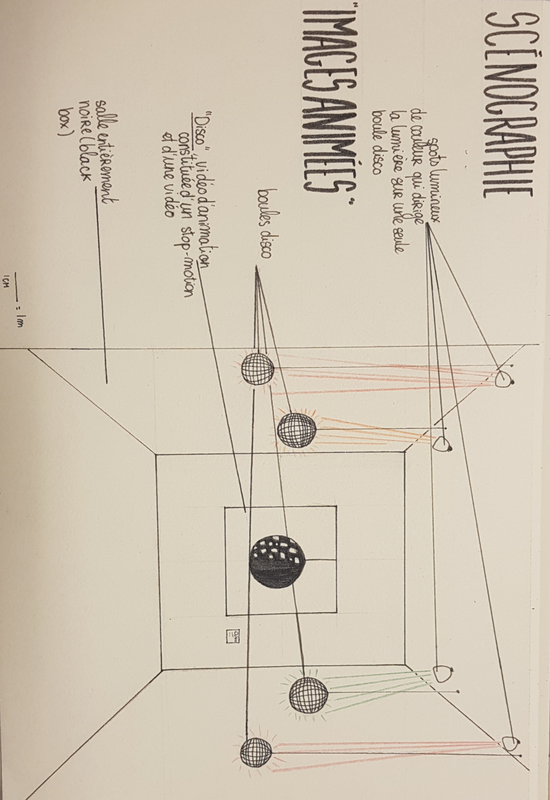 SCÉNOGRAPHIE
"IMAGES ANIMÉES"
spots lumineux
de couleur qui dirige
la lumière sur une seule
boule disco
boules disco
"Disco", vidéo d'animation
constituée d'un stop-motion
et d'une vidéo
salle entièrement
noire (black
box)
= 1m
1CM